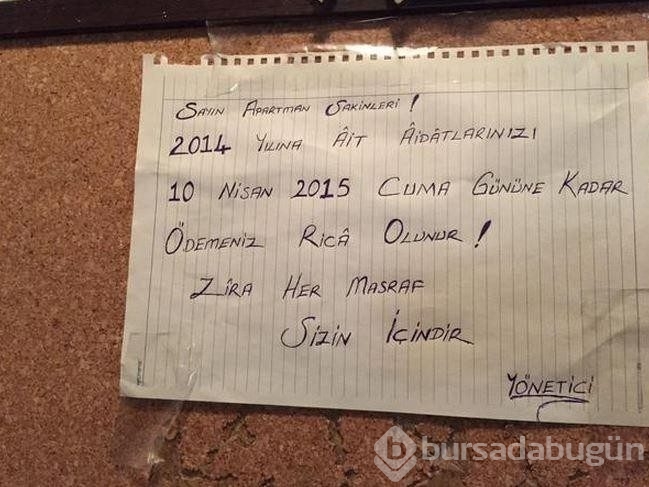 Sayın Apartman Sakinleri !
2014 Yılına Âit Âidâtlarınızı
10 Nisan 2015 Cuma Gününe Kadar
Ödemeniz Ricâ Olunur !
Zîra Her Masraf
Sizin İçindir
Yönetici
bursadabugün